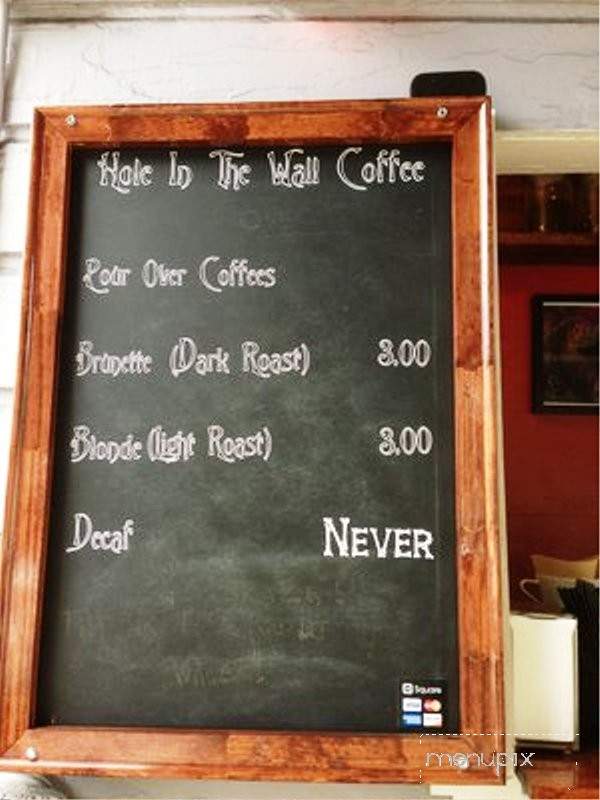 Hole In The Wall Coffee
Pour Over Coffees
Brunette (Dark Roast) 3.00
Blonde (Light Roast) 3.00
Decaf NEVER
Square
VISA
menupix